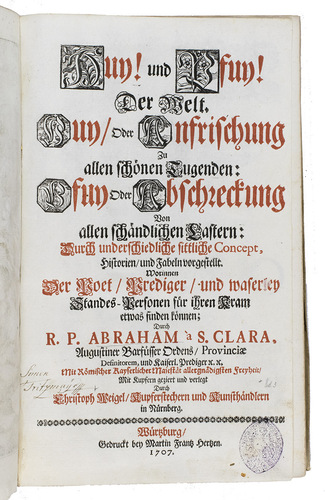 Huy! und Pfuy!
Der Welt.
Huy/ Oder Anfrischung
Zu
allen schönen Tugenden:
Pfuy Oder Abschreckung
Von
allen schändlichen Lastern:
Durch underschiedliche sittliche Concept,
Historien/ und Fabeln vorgestellt.
Worinnen
Der Poet/ Prediger/ und waserley
Standes-Persohnen für ihren Kram
etwas finden können;
Durch
R. P. ABRAHAM à S. CLARA,
Augustiner Barfüsser Ordens/ Provinciæ
Definitorem, und Kaiserl. Prediger &c. &c.
Mit Römischer Kayserlicher Majestät allergnädigsten Freyheit/
Mit Kupfern geziert und verlegt
Durch
Christoph Weigel/ Kupferstechern und Kunsthändlern
in Nürnberg.
Würtzburg/
Gedruckt bey Martin Frantz Hertzen.
1707.